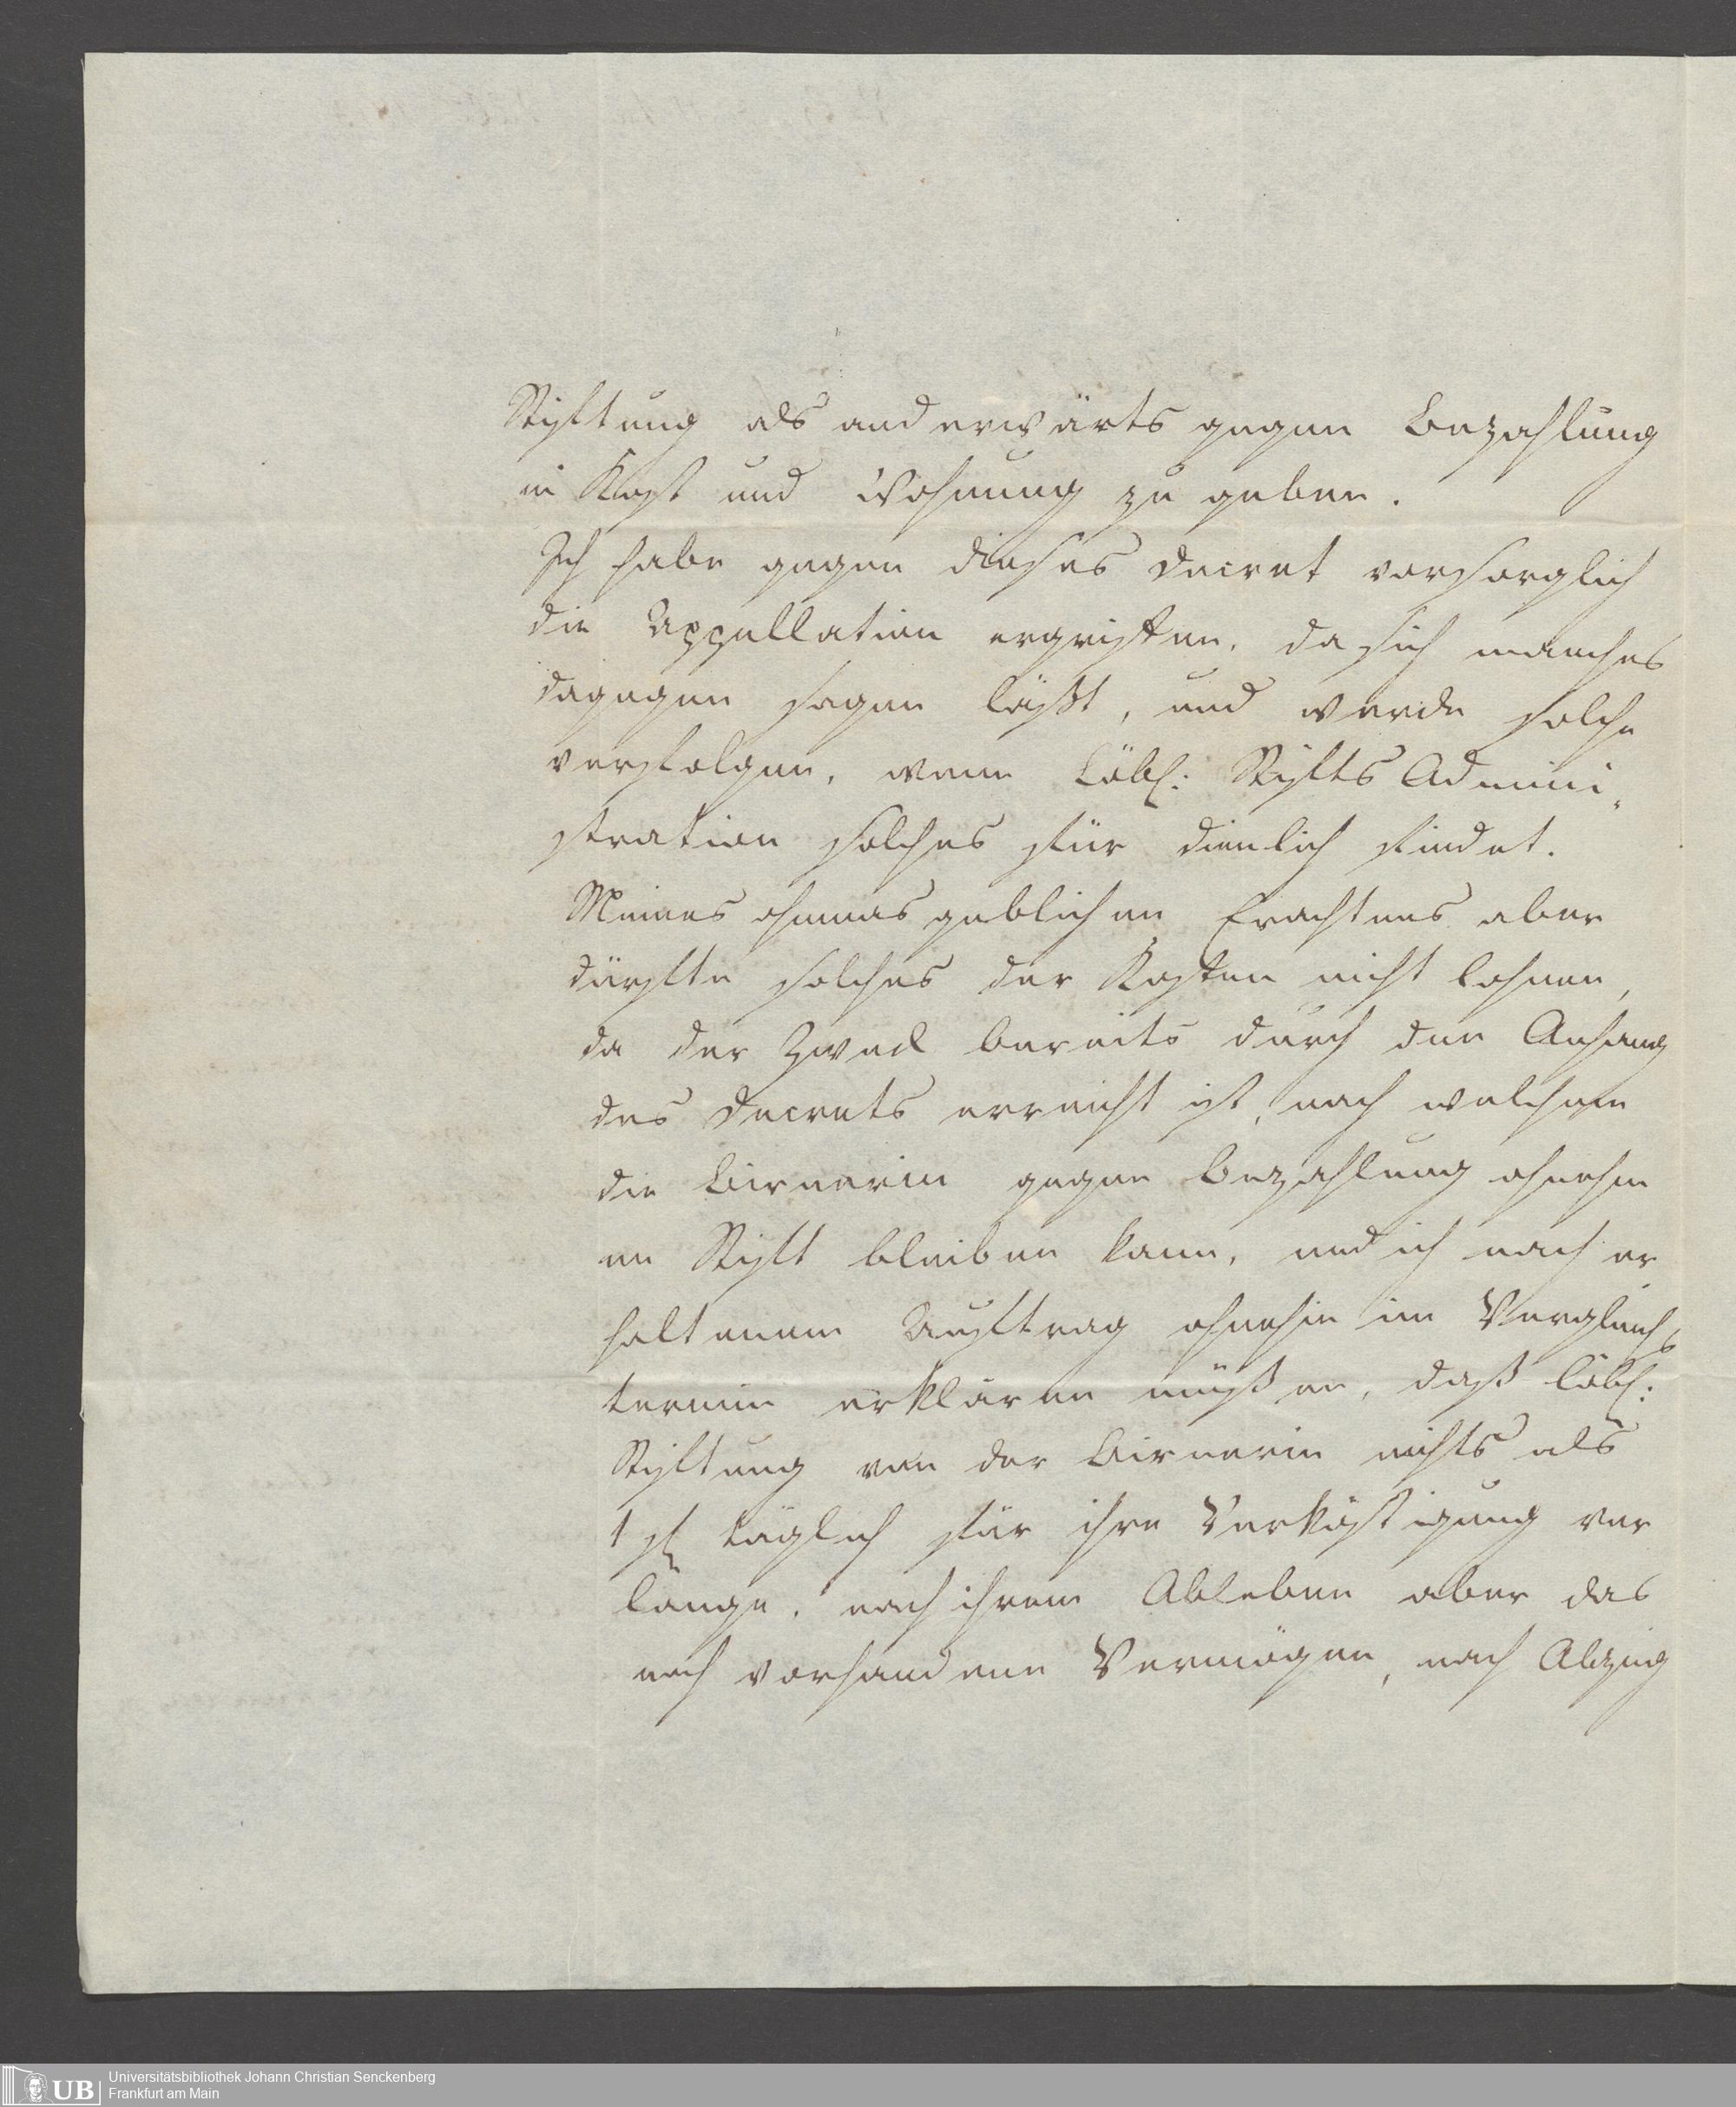 Stiftung als anderwärts gegen Bezahlung
in Kost und Wohnung zu geben.
Ich habe gegen dieses Decret vorsorglich
die Appellation ergriffen, da sich manches
dagegen sagen läßt, und werde solche
verfolgen, wenn Löbl: Stifts Admini„
stration solches für dienlich findet.
Meines ohnmasgeblichen Erachtens aber
dürfte solches der Kosten nicht lohnen,
da der Zweck bereits durch den Anhang
des Decrets erreicht ist, nach welchem
die Birnerin gegen Bezahlung ohnehin
im Stift bleiben kann, und ich nach er
haltenem Auftrag ohnehin im Vergleichs
termin erklären müßen, daß Löbl:
Stiftung von der Birnerin nichts als
1 fl täglich für ihre Verköstigung ver
lange, nach ihrem Ableben aber das
noch vorhandene Vermögen, nach Abzug
UB
Universitätsbibliothek Johann Christian Senckenberg
Frankfurt am Main